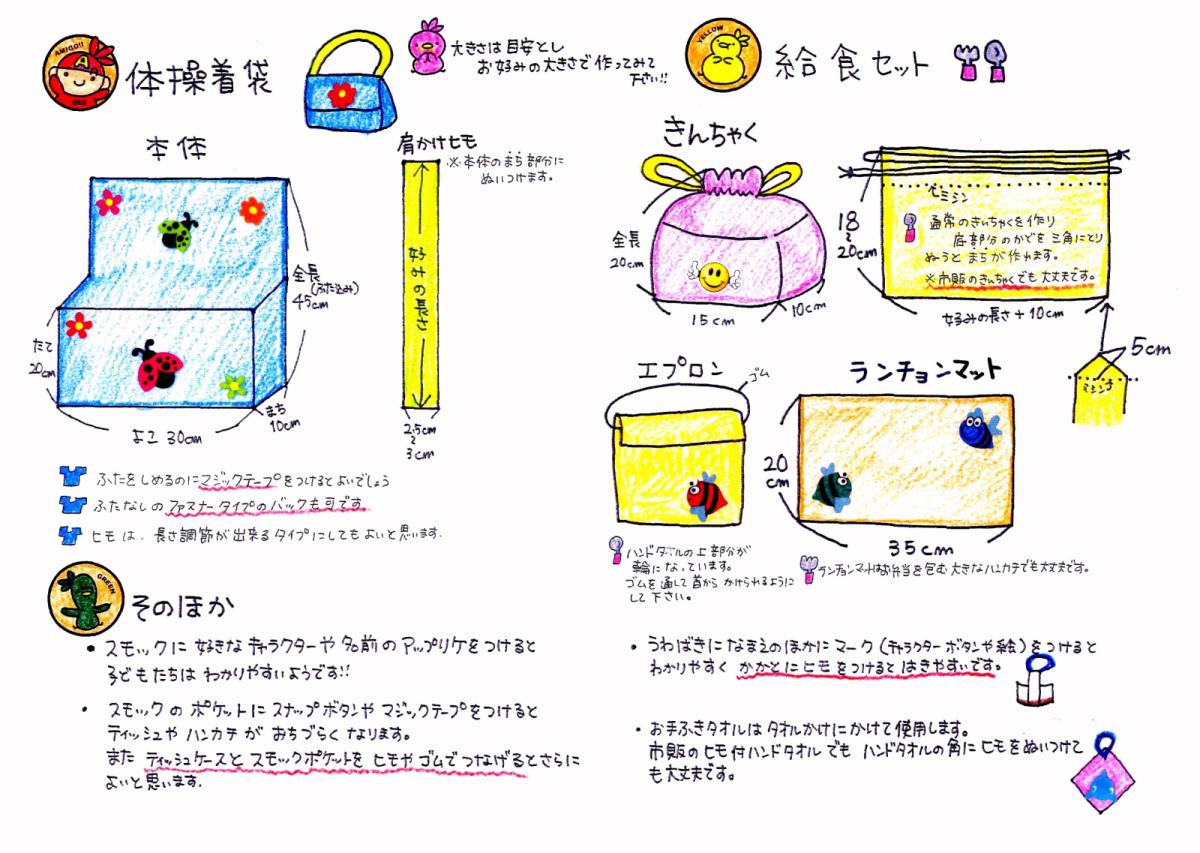 AMIGO!!
RED
体操着袋
大きさは目安とし
お好みの大きさで作ってみて
下さい!!
本体
肩かけヒモ
※本体のまち部分に
ぬいつけます。
好みの長さ
全長
(ふた込み)
45cm
たて
20cm
まち
10cm
よこ 30cm
2.5cm
〜
3cm
ふたをしめるのにマジックテープをつけるとよいでしょう
ふたなしのファスナータイプのバックも可です。
ヒモは、長さ調節が出来るタイプにしてもよいと思います。
YELLOW
給食セット
きんちゃく
全長
20cm
15cm
10cm
18
〜
20cm
ミシン
通常のきんちゃくを作り
底部分のかどを三角にとり
ぬうとまちが作れます。
※市販のきんちゃくでも大丈夫です。
好みの長さ+10cm
5cm
ミシン
エプロン
ゴム
ハンドタオルの上部分が
輪になっています。
ゴムを通して首からかけられるように
して下さい。
ランチョンマット
20
cm
35cm
ランチョンマットはお弁当を包む大きなハンカチでも大丈夫です。
GREEN
そのほか
• スモックに好きなキャラクターや名前のアップリケをつけると
子どもたちはわかりやすいようです!!
• スモックのポケットにスナップボタンやマジックテープをつけると
ティッシュやハンカチがおちづらくなります。
また ティッシュケースとスモックポケットをヒモやゴムでつなげるとさらに
よいと思います.
• うわばきになまえのほかにマーク(キャラクターボタンや絵)をつけると
わかりやすく かかとにヒモをつけるとはきやすいです。
• お手ふきタオルはタオルかけにかけて使用します。
市販のヒモ付ハンドタオルでも ハンドタオルの角にヒモをぬいつけて
も大丈夫です。